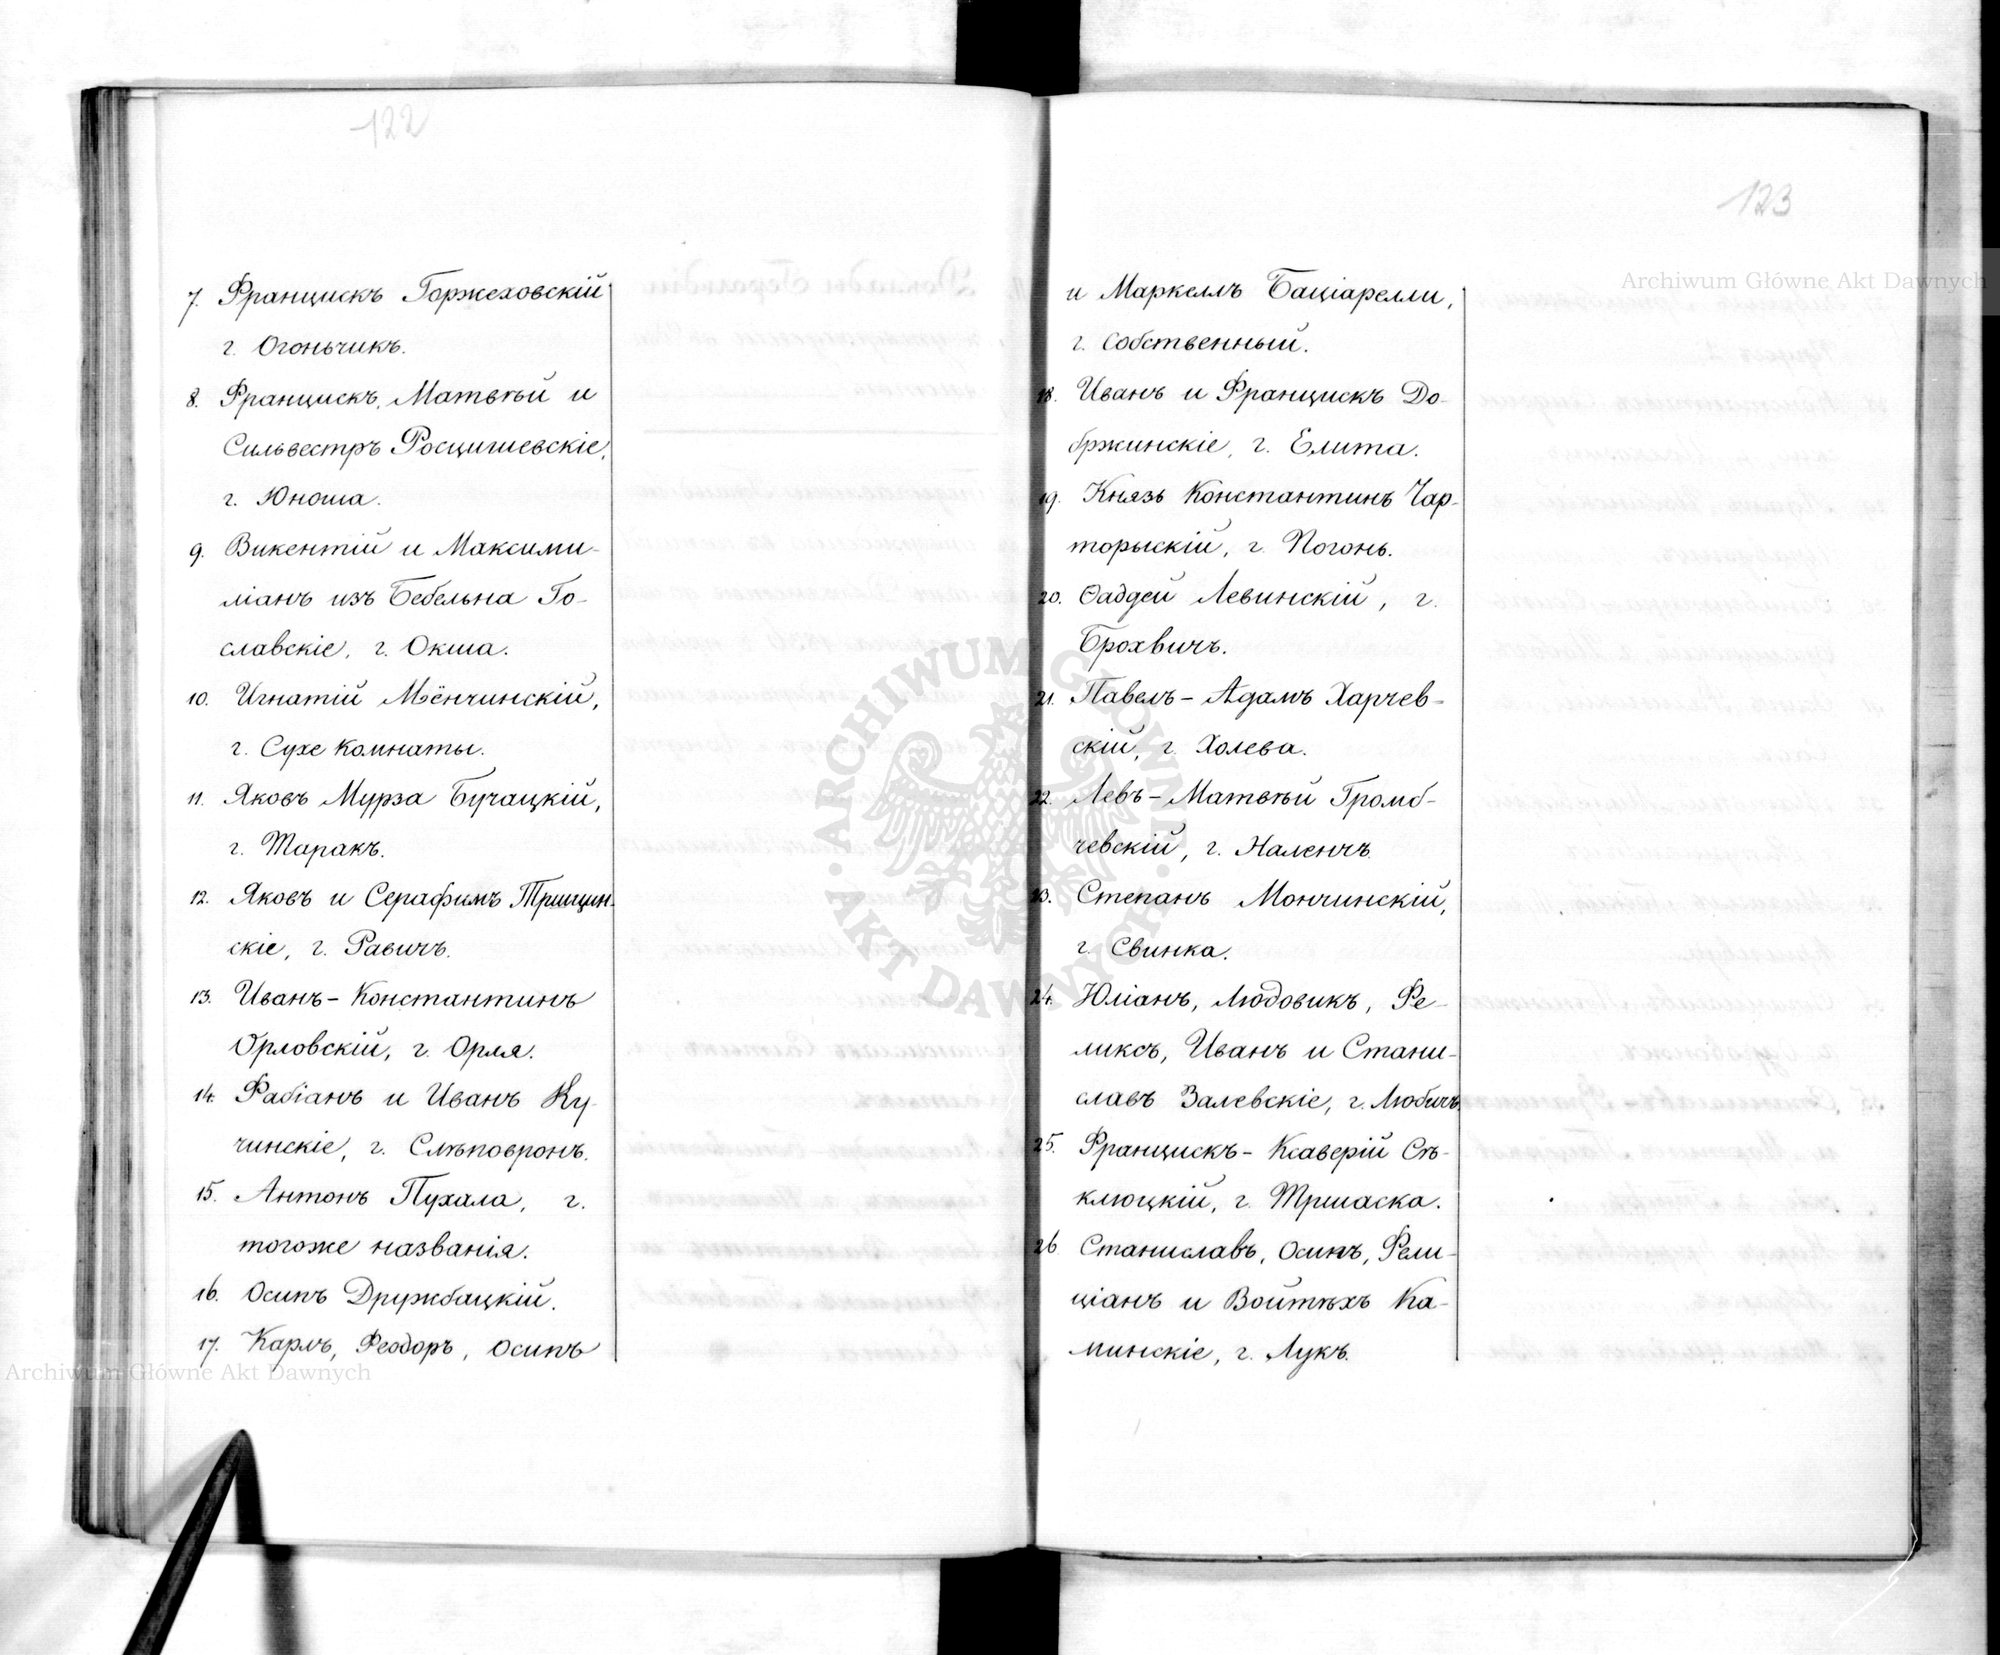 122
7. Францискъ Горжеховскій
г. Огоньчикъ.
8. Францискъ, Матвѣй и
Сильвестръ Росцишевскіе,
г. Юноша.
9. Викентій и Максими-
ліанъ изъ Бебельна Го-
славскіе, г. Окша.
10. Игнатій Мёнчинскій,
г. Сухе Комнаты.
11. Яковъ Мурза Бучацкій,
г. Таракъ.
12. Яковъ и Серафимъ Трищин-
скіе, г. Равичъ.
13. Иванъ-Константинъ
Орловскій, г. Орля.
14. Фабіанъ и Иванъ Ку-
чинскіе, г. Слѣповронъ.
15. Антонъ Пухала, г.
тогоже названія.
16. Осипъ Дружбацкій.
17. Карлъ, Феодоръ, Осипъ
123
и Маркеллъ Баціарелли,
г. Собственный.
18. Иванъ и Францискъ До-
бржинскіе, г. Елита.
19. Князь Константинъ Чар-
торыскій, г. Погонь.
20. Ѳаддей Левинскій, г.
Брохвичъ.
21. Павелъ-Адамъ Харчев-
скій, г. Холева.
22. Левъ-Матвѣй Громб-
чевскій, г. Наленчъ.
23. Степанъ Мончинскій,
г. Свинка.
24. Юліанъ, Людовикъ, Фе-
ликсъ, Иванъ и Стани-
славъ Залевскіе, г. Любичъ.
25. Францискъ-Ксаверій Сѣ-
клюцкій, г. Тршаска.
26 Станиславъ, Осипъ, Фели-
ціанъ и Войтѣхъ Ка-
минскіе, г. Лукъ.
Archiwum Główne Akt Dawnych
ARCHIWUM GŁÓWNE AKT DAWNYCH
Archiwum Główne Akt Dawnych